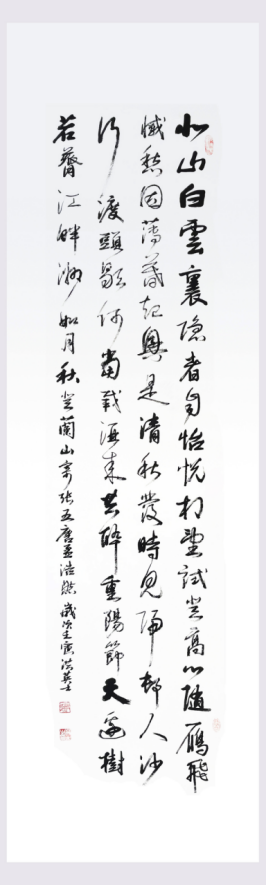 北山白雲裏隐者自怡悦相望試登高心隨鴈飛
滅愁因薄暮起興是清秋發時見歸邨人沙
行渡頭歇何當載酒来共醉重陽節天邊樹
若薺江畔洲如月秋登蘭山寄張五唐孟浩然歲次壬寅洪英士